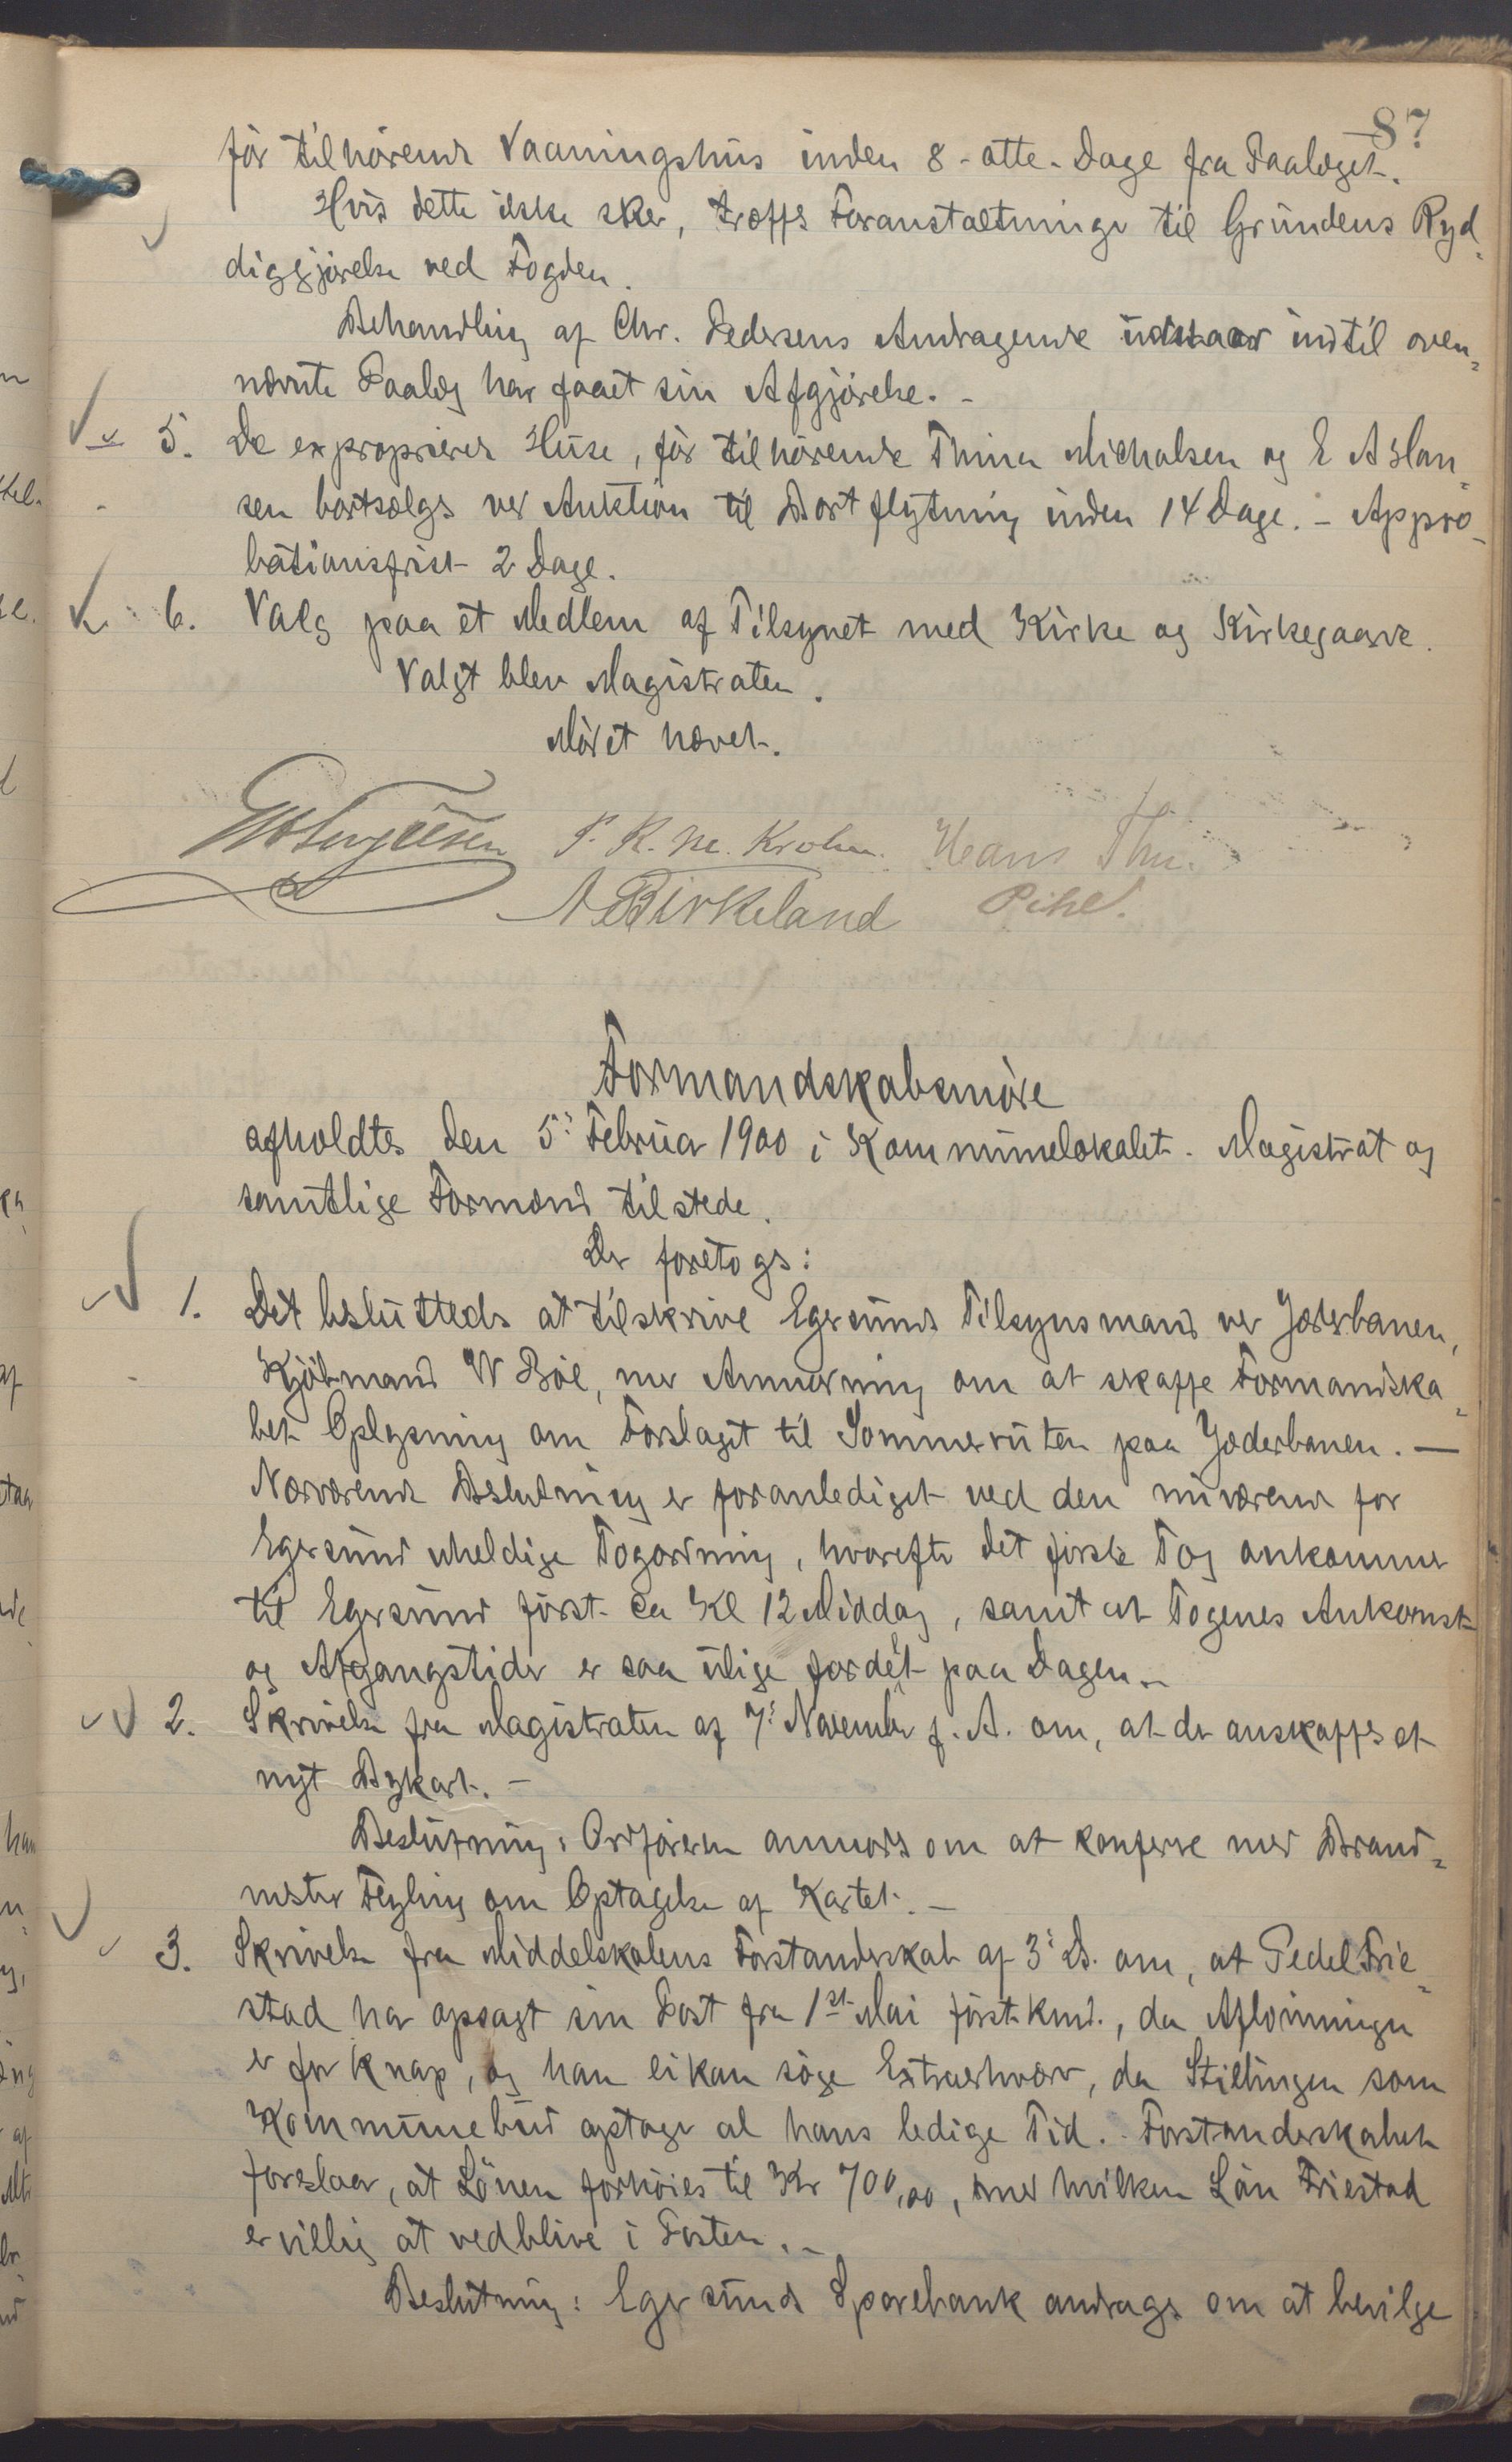 87
før tilhørende Vaaningshus inden 8-otte-Dage fra Paalæget.
Hvis dette ikke sker, træffes Foranstaltninger til Grundens Ryd-
diggjørelse ved Fogden.
Behandling af Chr. Pedersens Andragende udstaar indtil oven-
nævnte Paalæg har faaet sin Afgjørelse. -
5. De exproprierede Huse, før tilhørende Thina Michalsen og E Aslan-
sen bortsælges ved Auktion til Bortflytning inden 14 Dage. - Appro-
bationsfrist 2 Dage.
6. Valg paa et Medlem af Tilsynet med Kirke og Kirkegaard.
Valgt blev Magistraten.
Mødet hævet.
P. R. M. Krohn. Hans Thu.
A Birkeland Pihl.
Formandskabsmøde
afholdtes den 5' Februar 1900 i Kommunelokalet. Magistrat og
samtlige Formænd tilstede.
Der foretoges:
1. Det besluttedes at tilskrive Egersunds Tilsynsmand ved Jæderbanen,
Kjøbmand W Bøe, med Anmodning om at skaffe Formandska-
bet Oplysning om Forslaget til Sommerruten paa Jæderbanen. —
Nærværende Beslutning er foranlediget ved den nuværende for
Egersund uheldige Togordning, hvorefter det første Tog ankommer
til Egersund først ca Kl 12 Middag, samt at Togenes Ankomst
og Afgangstider er saa ulige fordelt paa Dagen. -
2. Skrivelse fra Magistraten af 7' November f. A. om, at der anskaffes et
nyt Bykart. -
Beslutning: Ordføreren anmodes om at konferere med Brand-
mester Feyling om Optagelse af Kartet. -
3. Skrivelse fra Middelskolens Forstanderskab af 3' ds. om, at Pedel Frie-
stad har opsagt sin Post fra 1st Mai førstkmd., da Aflønningen
er for knap, og han ei kan søge Extraerhverv, da Stillingen som
Kommunebud optager al hans ledige Tid. Forstanderskabet
foreslaar, at Lønnen forhøies til Kr 700,00, med hvilken Løn Friestad
er villig at vedblive i Posten. -
Beslutning: Egersunds Sparebank andrages om at bevilge